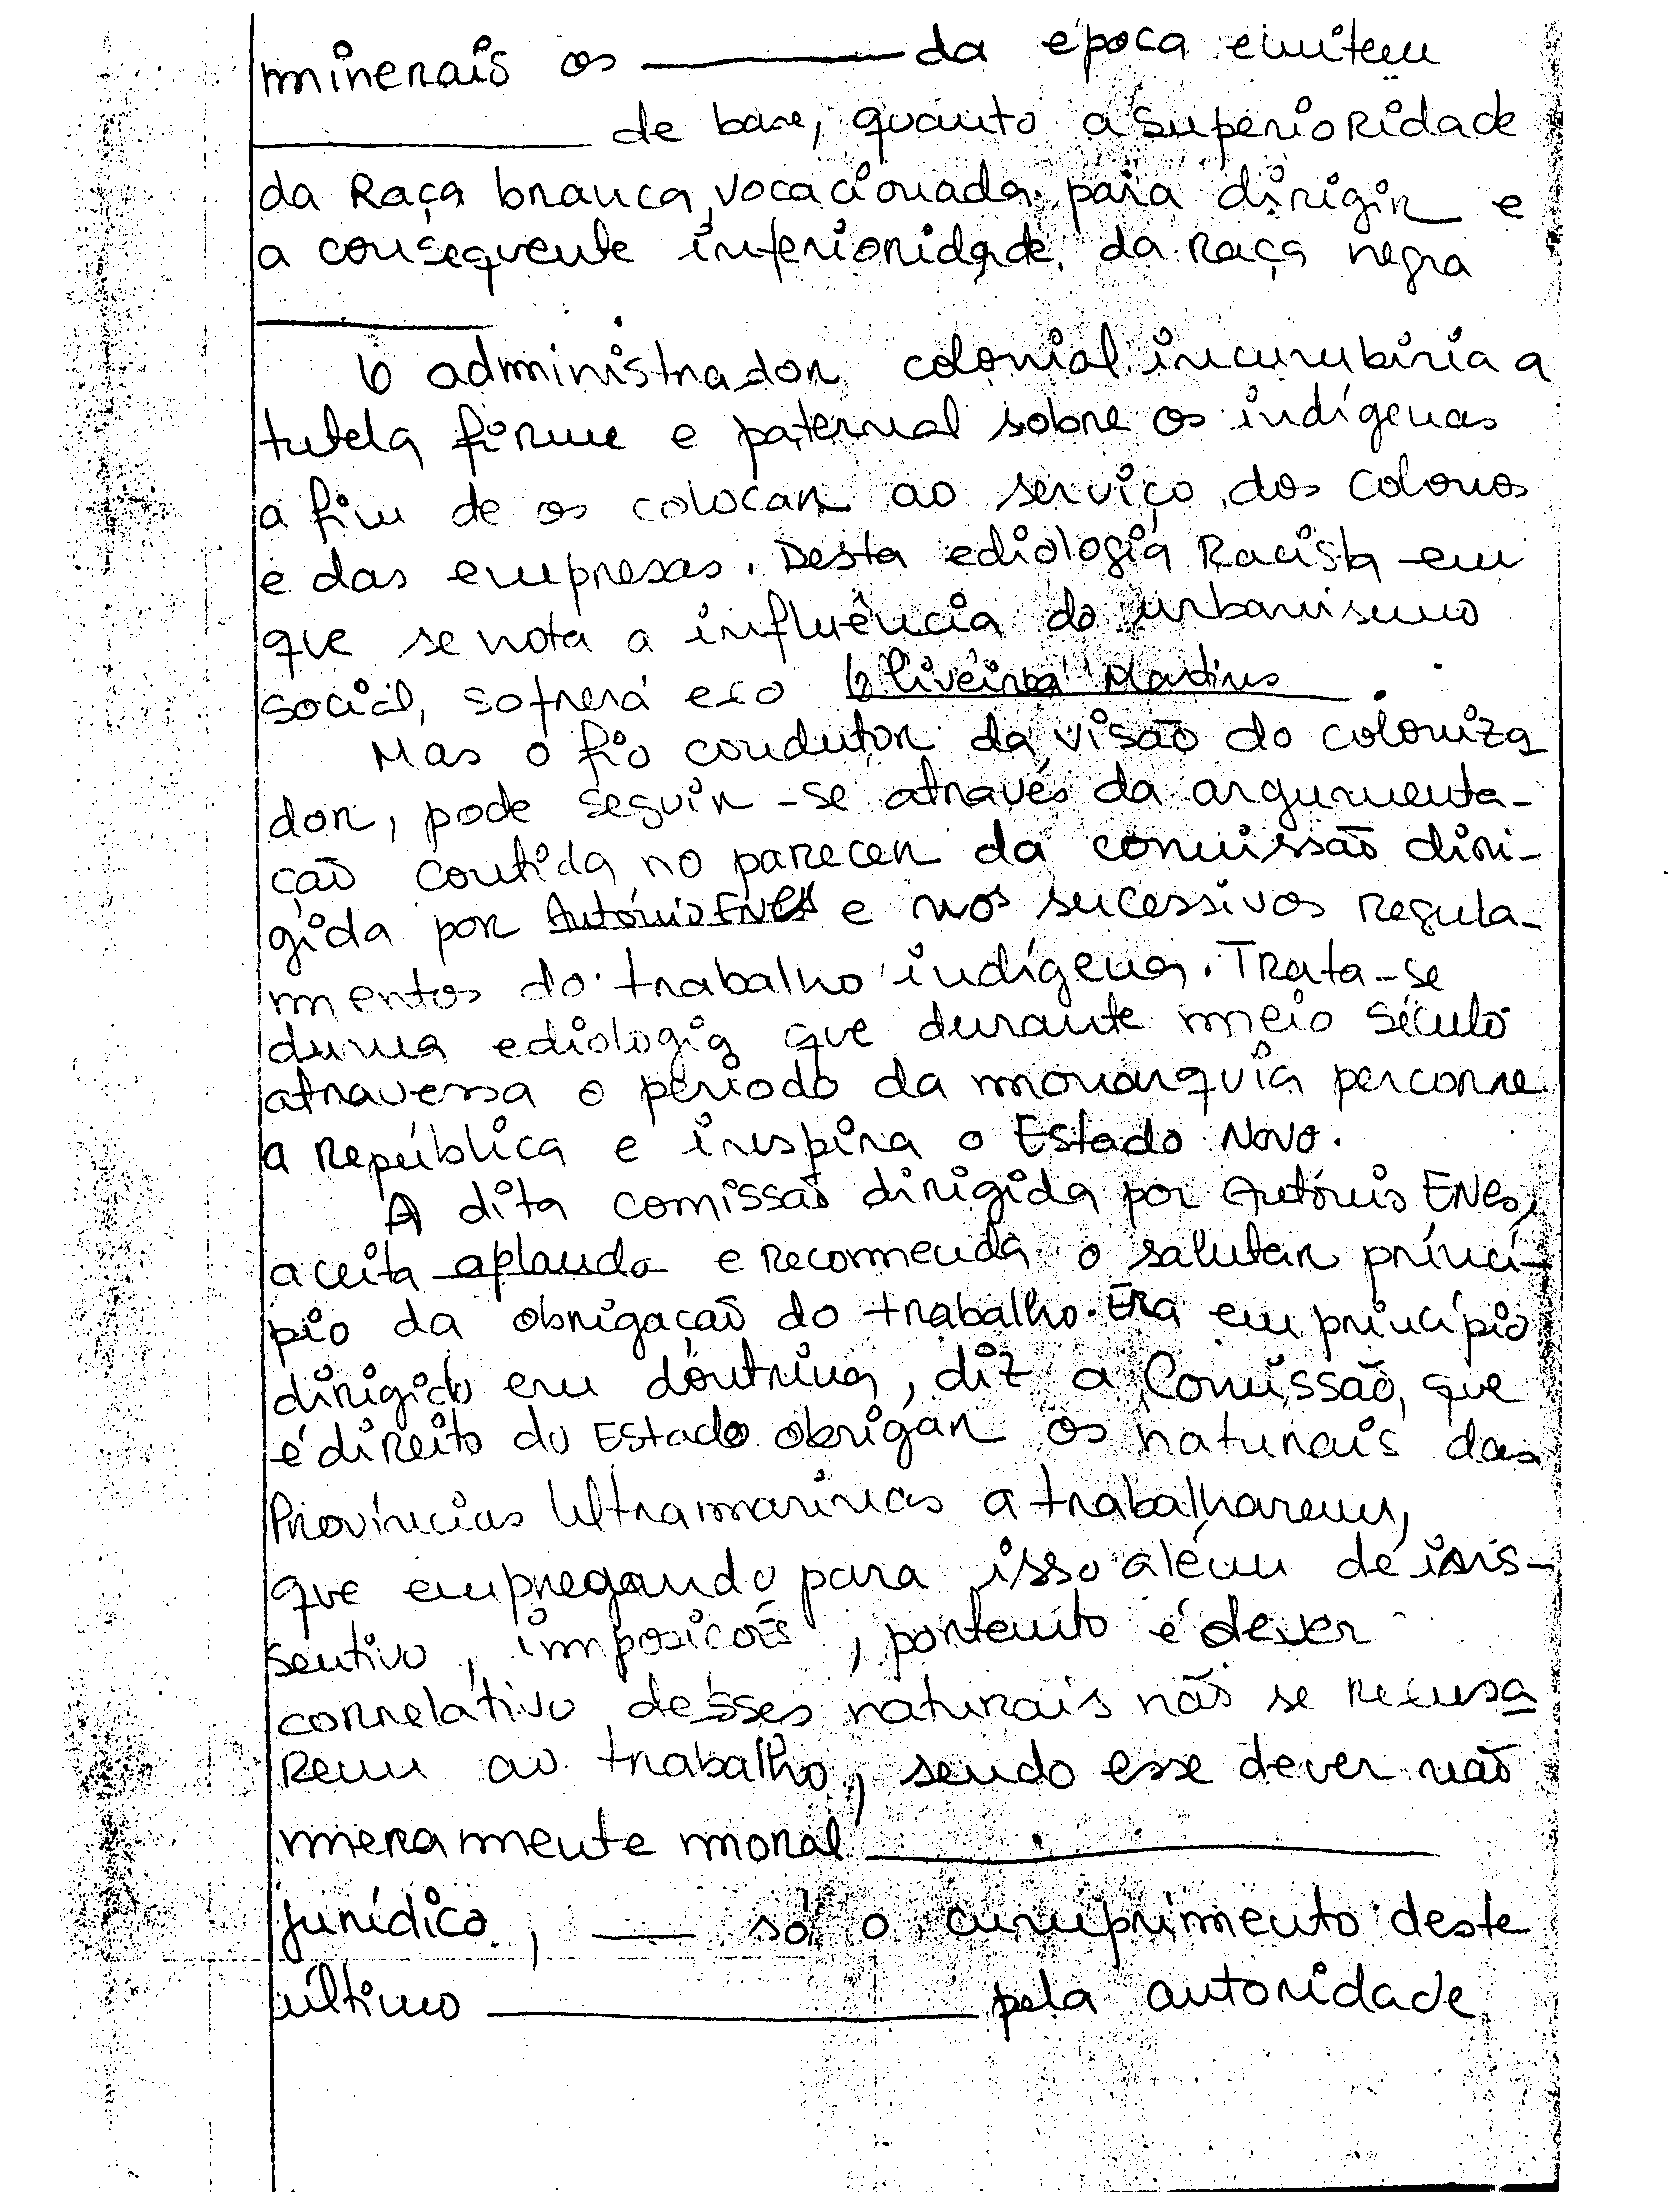 minerais os ______ da epoca emitem
______ de base, quanto a superioridade
da Raça branca, vocacionada para dirigir e
a consequente inferioridade, da Raça negra
______
O administrador colonial incumbiria a
tutela firme e paternal sobre os indígenas
a fim de os colocar ao serviço dos colonos
e das empresas. Desta ediologia Racista em
que se nota a influência do urbanismo
social, sofrerá eco Oliveira Martins.
Mas o fio condutor da visão do coloniza
dor, pode seguir-se através da argumenta-
ção contida no parecer da comissão diri-
gida por António Enes e nos sucessivos Regula-
mentos do trabalho indígena. Trata-se
duma ediologia que durante meio século
atravessa o período da monarquia percorre
a República e inspira o Estado Novo.
A dita comissão dirigida por António Enes,
aceita aplauda e recomenda o salutar princí-
pio da obrigação do trabalho. Era em princípio
dirigido em doutrina, diz a Comissão, que
é direito do Estado obrigar os naturais das
Províncias Ultramarinas a trabalharem,
que empregando para isso além de inis-
sentivo, imposicões, portento é dever
correlativo desses naturais não se recusa
rem ao trabalho, sendo esse dever não
meramente moral ______
jurídico, ___ só o cumprimento deste
último ______ pela autoridade